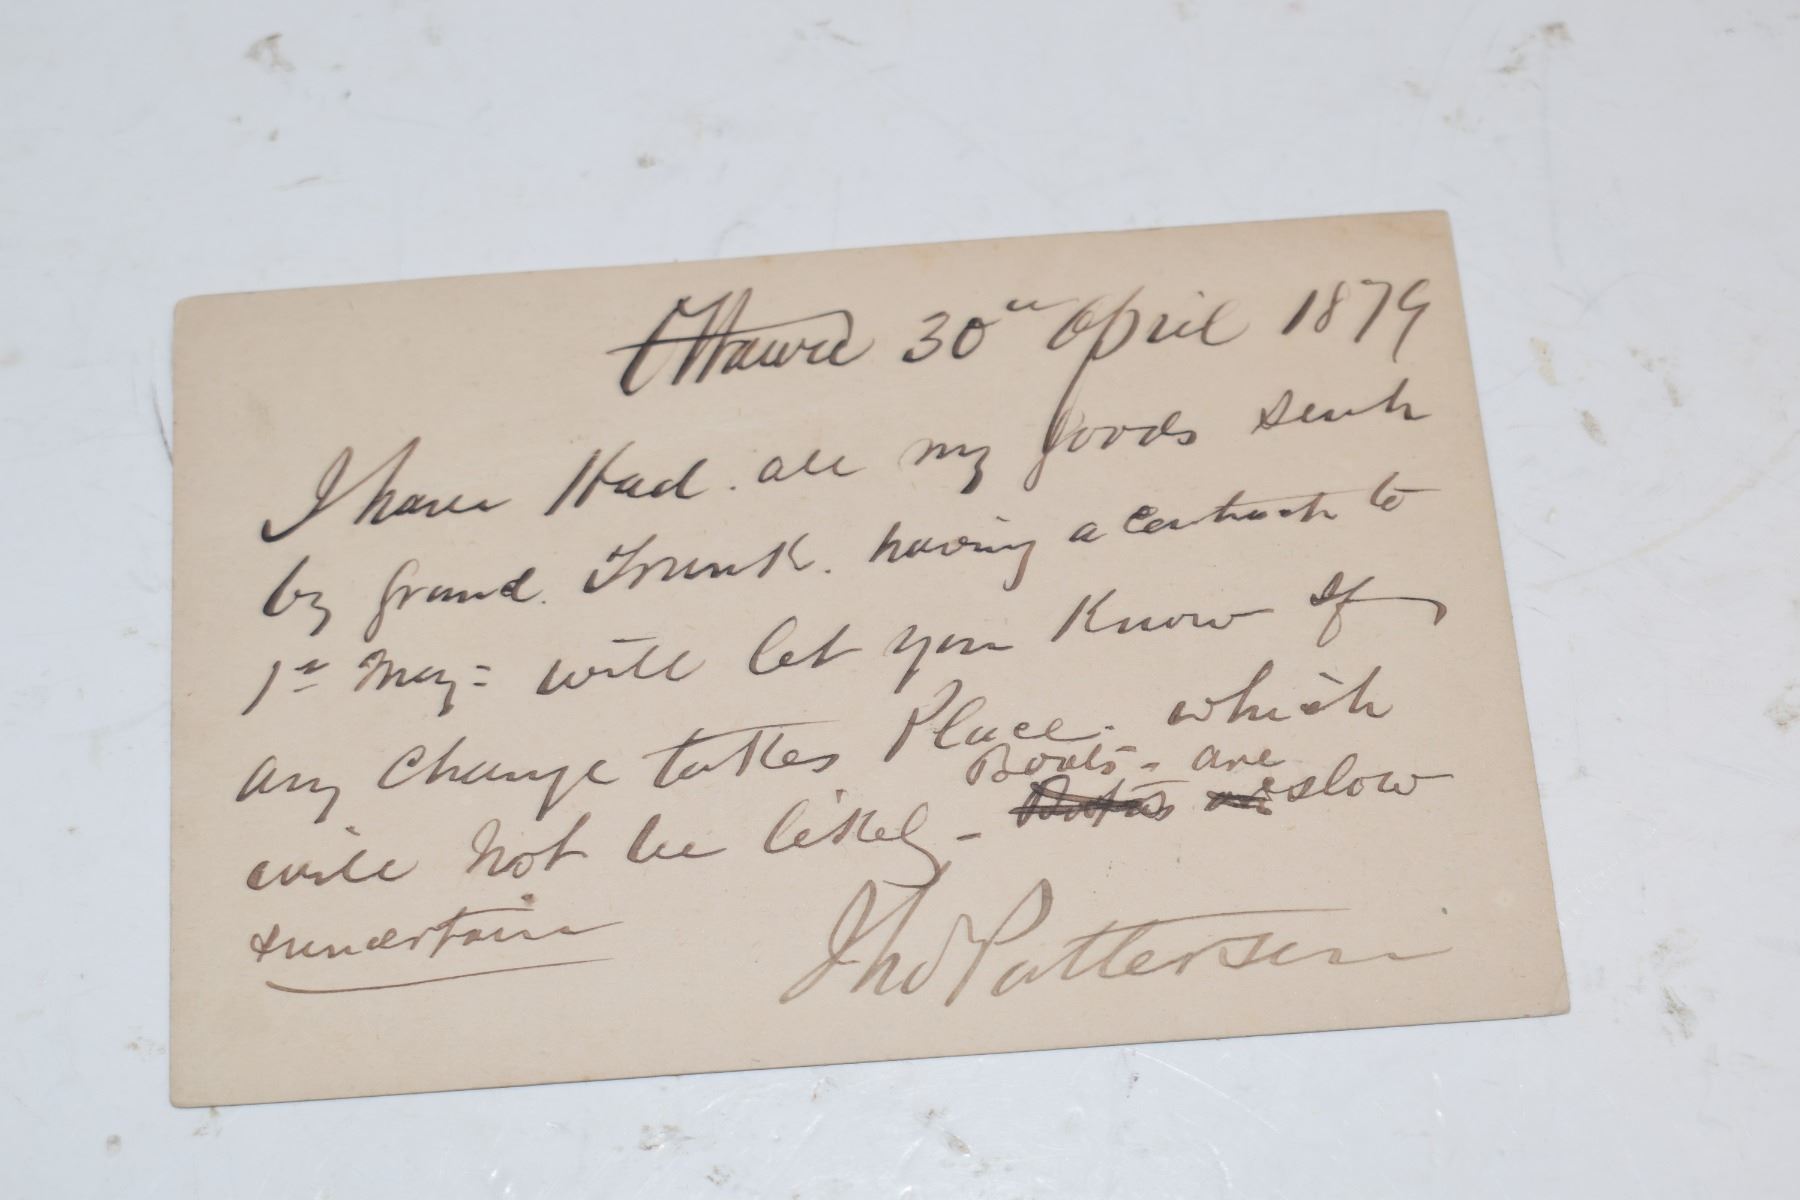 Ottawa 30th April 1879
I have Had. all my goods sent
by Grand. Trunk. having a Contract to
1st May = will let you Know If
any Change takes Place. which
will Not be likely - Boats - are slow
& uncertain
Thos Patterson